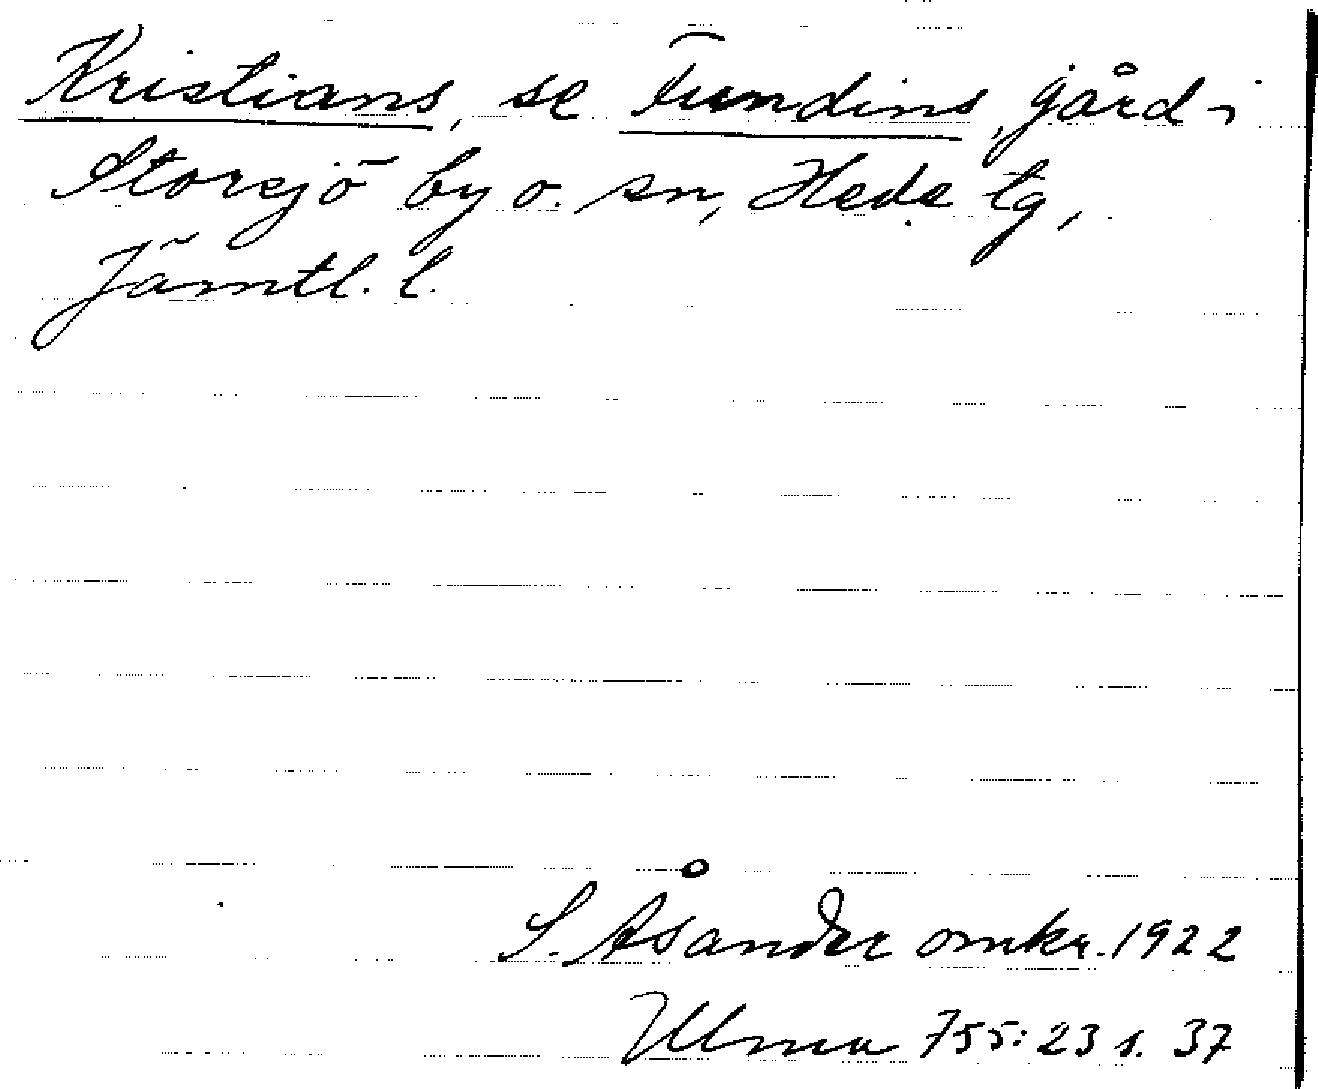 Kristians, se Fundins, gård i
Storsjö by o. sn, Hede tg,
Jämtl. l.
S. Åsander omkr. 1922
Ulma 755:23 s. 37